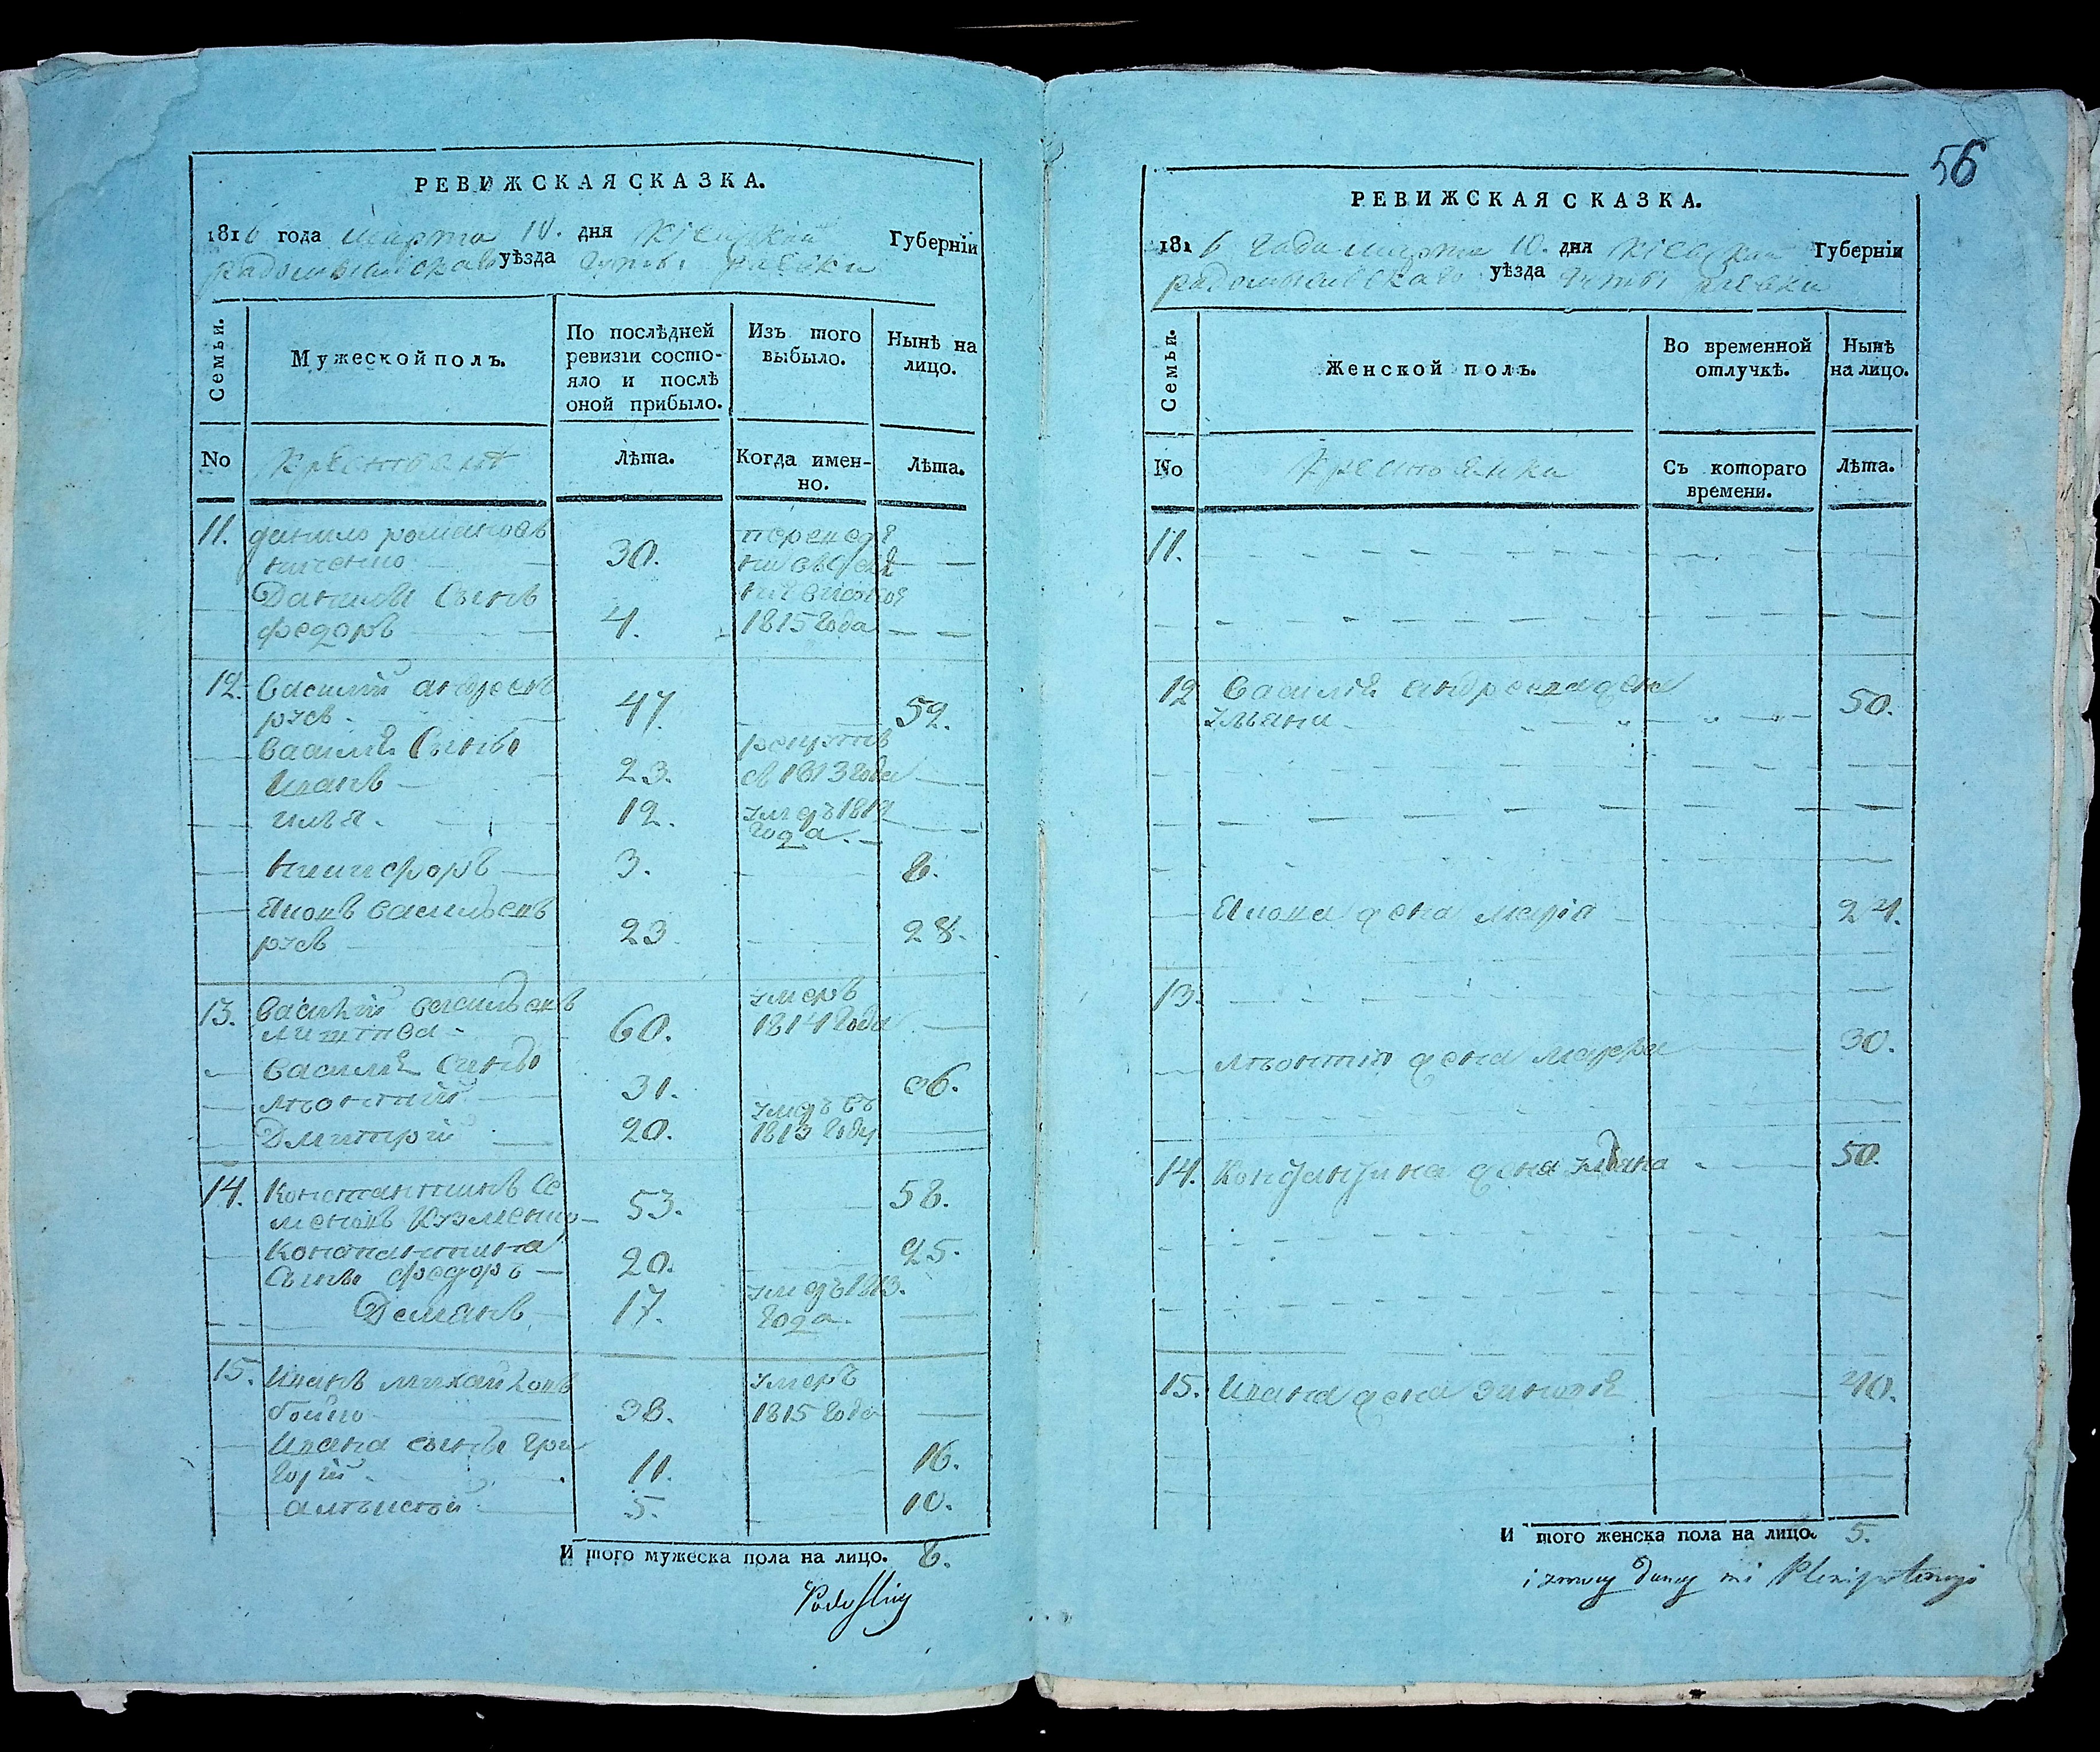 РЕВИЖСКАЯ СКАЗКА.
1816 года Марта 10. дня Кіевской Губерніи
радомыслскаго уѣзда
Семьи.
Мужеской полъ.
По послѣдней ревизіи состо-
яло и послѣ
оной прибыло.
Изъ того
выбыло.
Нынѣ на
лицо.
No
Крестьяне
Лѣта.
Когда имен-
но.
Лѣта.
11. данило романовъ
30.
Данила Сынъ
федоръ 4. 1815 года
12. Василий андреевъ
47. 52.
Василія Сынъ рекрутъ
Иванъ 23. въ 1813 года
илья. 12. умеръ 1812
года.
Никифоръ 3. 8.
Яковъ васильевъ
23 28.
13. Василій васильевъ умеръ
60. 1814 года
Василія Сынъ
31. 36.
Дмитрій 20. умеръ въ
1813 году
14. Константинъ Се
меновъ Кузменко 53. 58.
Константина
Сынъ федоръ 20. 25.
Демянъ 17. умеръ 1813.
года.
15. Иванъ михайловъ умеръ
бойко 38. 1815 года
Ивана сынъ гри
горій 11. 16.
алексей 5. 10.
И того мужеска пола на лицо. 8.
56
РЕВИЖСКАЯ СКАЗКА.
1816 года Марта 10. дня Кіевской Губерніи
радомыслскаго уѣзда
Семьи.
Женской полъ.
Во временной
отлучкѣ.
Нынѣ
на лицо.
No
Крестьянки
Съ котораго
времени.
Лѣта.
11.
12 Василія андреева жена
ульяна 50.
Якова жена марія 24.
13.
жена мавра 30.
14. Константина жена ульяна 50.
15. Ивана жена зиновія 40.
И того женска пола на лицо. 5.
i z mocy daney mi Plenipotencyi